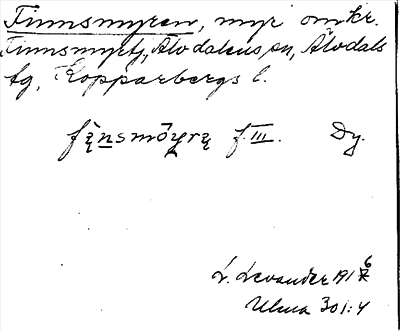 Finnsmyren, myr omkr.
Finnsmyrtj, Älvdalens sn, Älvdals
tg, Kopparbergs l.
f. III. Dy.
L. Levander 1916
Ulma 301:4